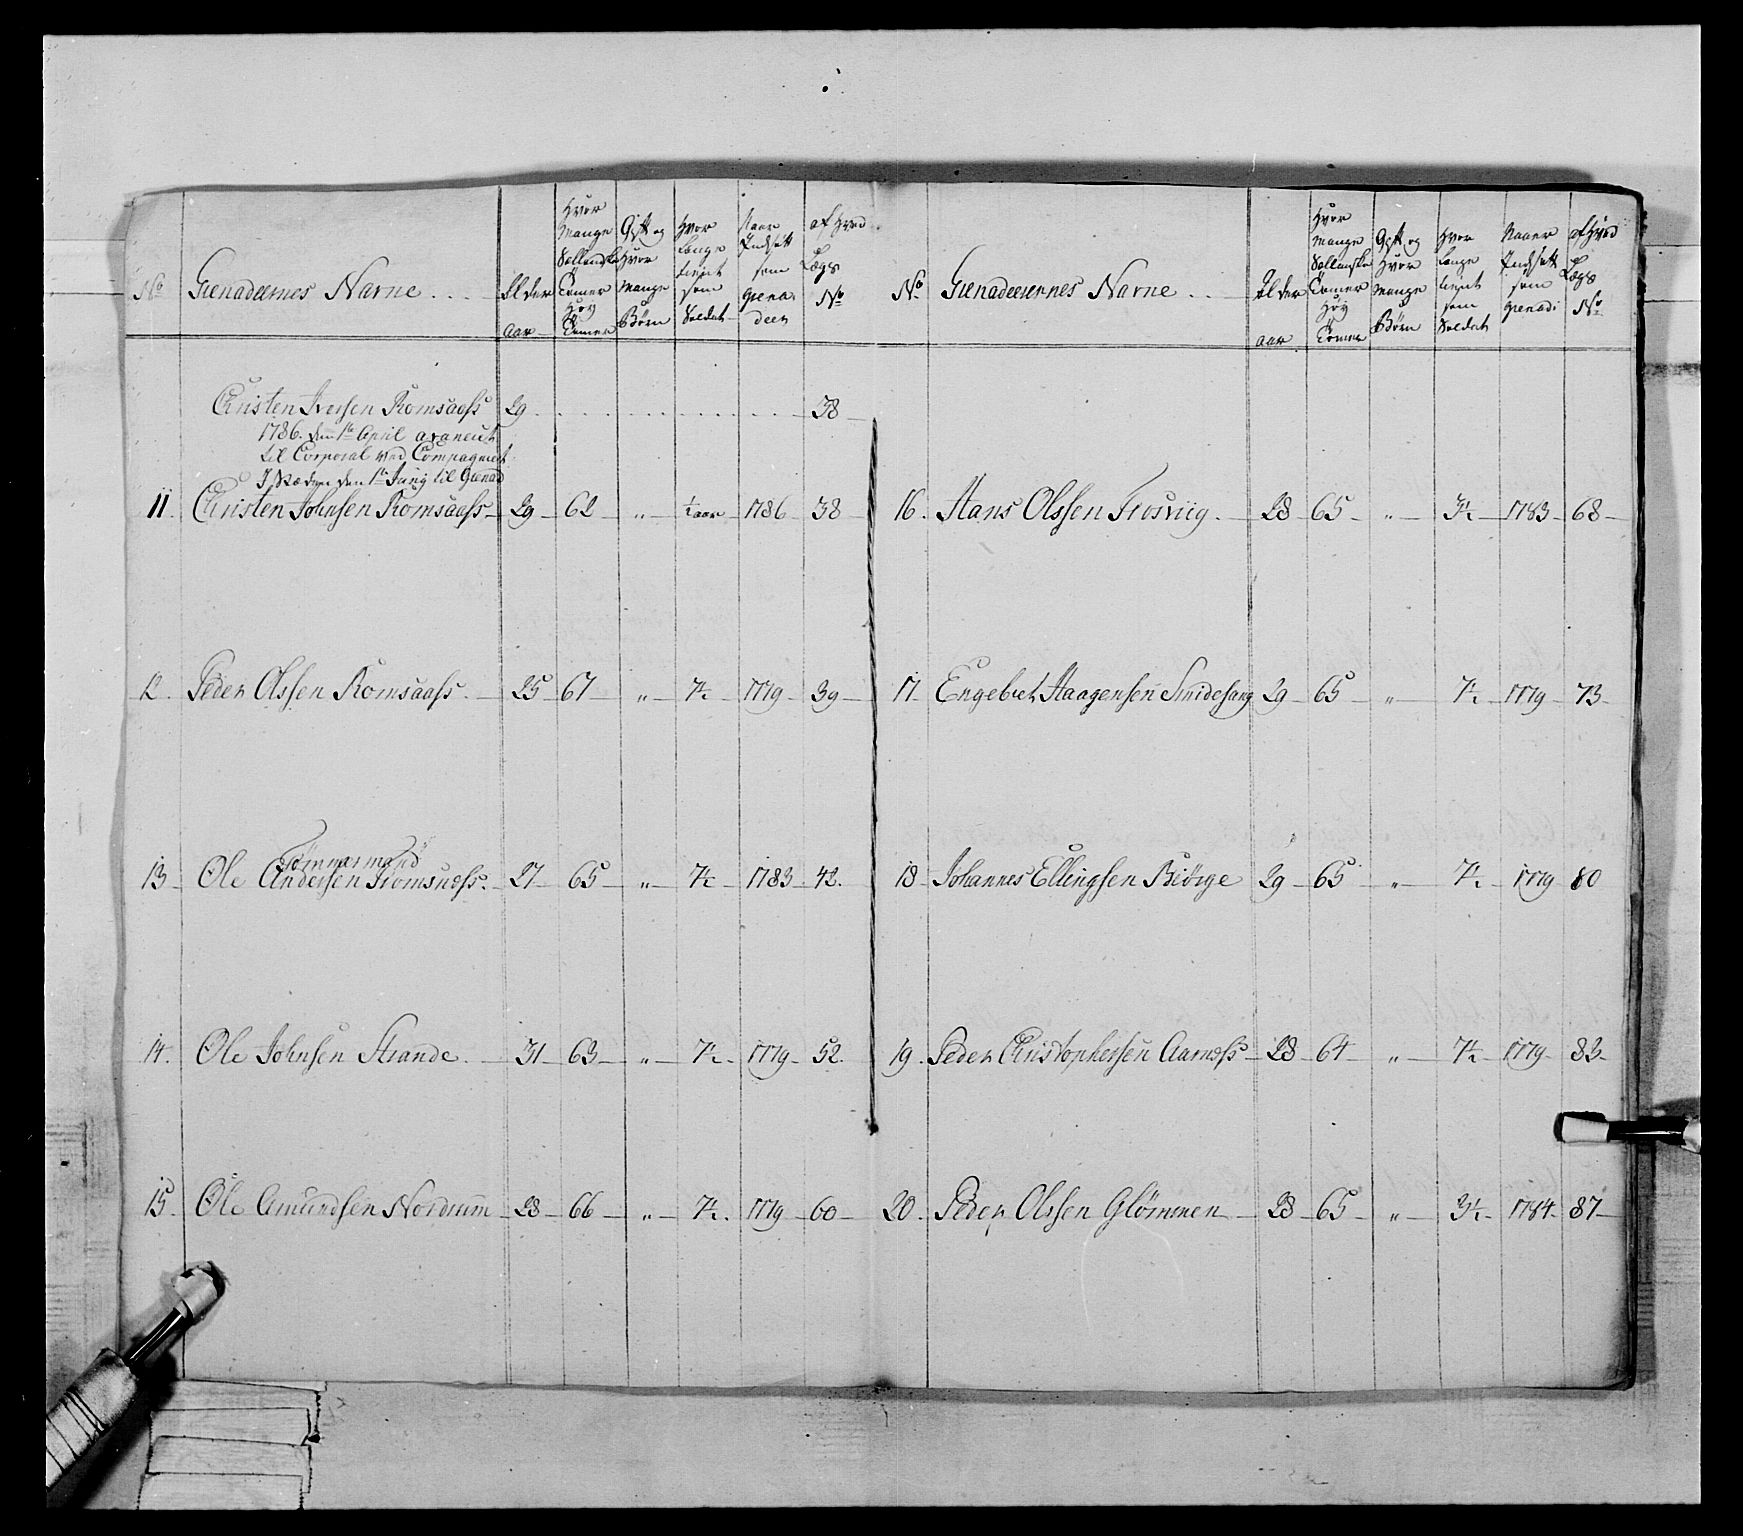 No Grenadeernes Navne Alder Aar Hvor mange Sællandske Tomer Høy Tomer Gift og Hvor mange Børn Hvor Længe tient som Soldat Naar Indsatt som Grenadeer af Hvad Lægs No
Christen Iversen Romsaass 29 38
1786. den 1te April avanceret
til Corporal ved Compagniet
I Stæden den 1te Juny til Grenad
11. Christen Johnsen Romsaass 29 62 „ ½ aar 1786 38
12. Peder Olssen Romsaass. 25 67 „ 7½ 1779 39
Tømmermand
13 Ole Andersen Tromsnæss. 27 65 „ 7½ 1783 42.
14. Ole Johnsen Strande. 31 63 „ 7½ 1779 52.
15. Ole Amundsen Nordrum 28 66 „ 7½ 1779 60
No Grenadeerernes Navne Alder Aar Hvor mange Sællanske Tomer Høy Tomer Gift og Hvor mange Børn Hvor Længe tient som Soldat Naaer Indsatt som Grenadi af Hvad Lægs No
16. Hans Olssen Trosviig. 28 65 „ 3½ 1783 68
17. Engebret Haagensen Smidesang 29 65 „ 7½ 1779 73
18 Johannes Ellingsen Biørge 29 65 „ 7½ 1779 80
19. Peder Christophersen Aarnæss 28 64 „ 7½ 1779 83
20. Peder Olssen Glømmen 28 65 „ 3½ 1784 87